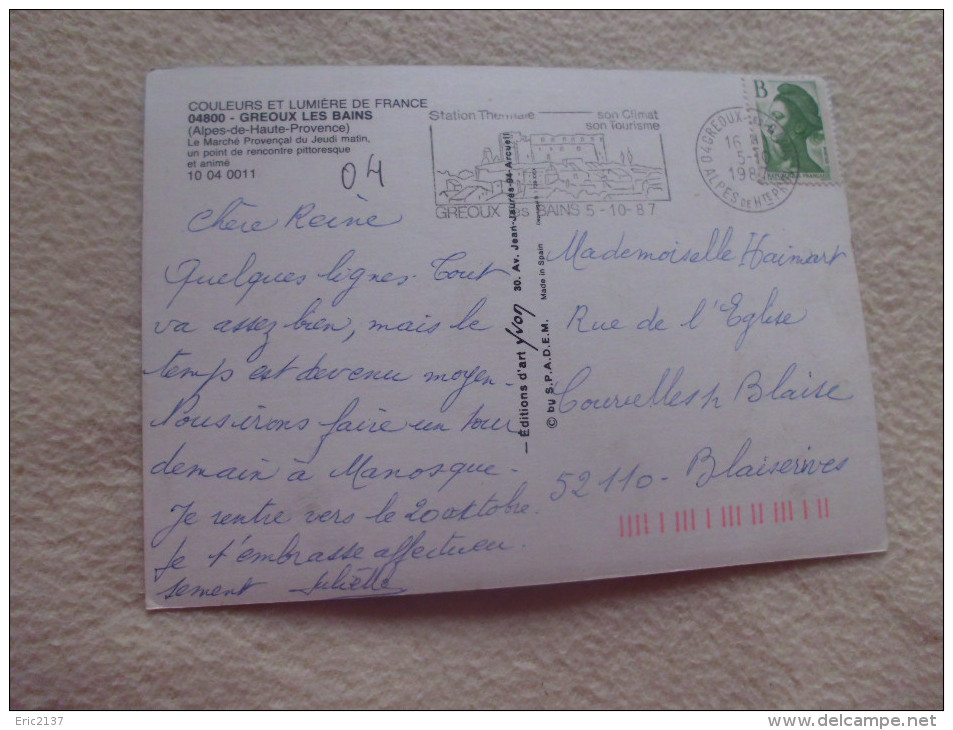 COULEURS ET LUMIÈRE DE FRANCE
04800 - GREOUX LES BAINS
(Alpes-de-Haute-Provence)
Le Marché Provençal du Jeudi matin,
un point de rencontre pittoresque
et animé
10 04 0011
04
Station Thermale son Climat
son Tourisme
GREOUX les BAINS 5-10-87
04 GREOUX-LES
16
5-10
1987
ALPES DE HTE PROV
B
Chère Reine
Quelques lignes. Tout
va assez bien, mais le
temps est devenu moyen-
Nous irons faire un tour
demain à Manosque-
Je rentre vers le 20 octobre.
Je t'embrasse affectueu
sement Juliette
— Éditions d'art yvon 30. Av. Jean-Jaurès-94-Arcueil
© by S.P.A.D.E.M. Made in Spain
Mademoiselle Haimart
Rue de l'Eglise
Courcelles s/ Blaise
52110 - Blaiserives
Eric2137
www.delcampe.net